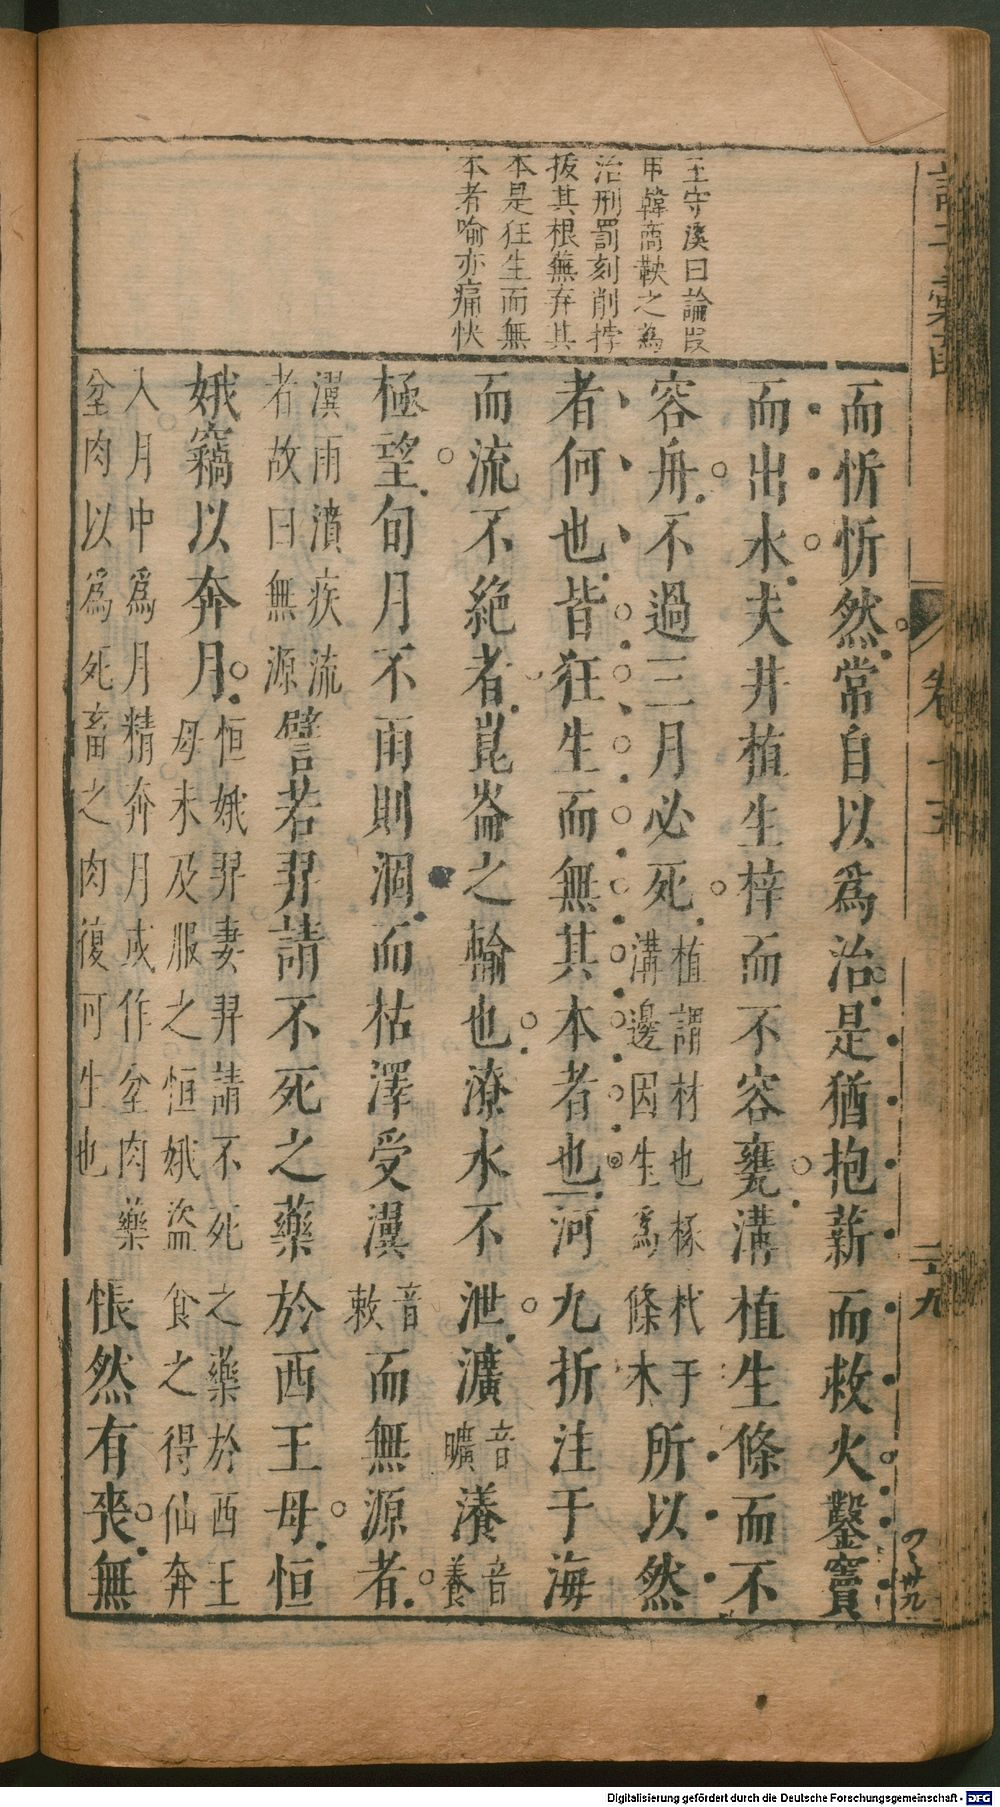 王守溪曰論叚
申韓商鞅之為
治刑罰刻削捽
拔其根蕪弃其
本是狂生而無
本者喻亦痛快
而忻忻然常自以爲治是猶抱薪而救火鑿竇
而出水夫井植生梓而不容甕溝植生條而不
容舟不過三月必死植謂材也椽杙于溝邊因生爲條木所以然
者何也皆狂生而無其本者也河九折注于海
而流不絕者崑崙之輸也潦水不泄瀇音曠瀁音養
極望旬月不雨則涸而枯澤受瀷音敕而無源者
瀷雨瀆疾流者故曰無源譬若羿請不死之藥於西王母恒
娥竊以奔月恒娥羿妻羿請不死之藥於西王母未及服之恒娥盜食之得仙奔
入月中爲月精奔月或作坌肉藥坌肉以爲死畜之肉復可生也悵然有喪無
卷十五
二十九
Digitalisierung gefördert durch die Deutsche Forschungsgemeinschaft - DFG